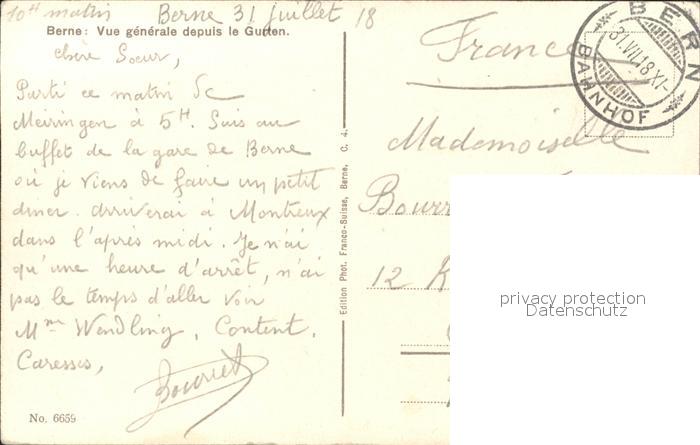 10H matin Berne 31 juillet 18
Berne: Vue générale depuis le Gurten.
Chère Soeur,
Parti ce matin de
Meiringen à 5H. Suis au
buffet de la gare de Berne
où je viens de faire un petit
diner. arriverai à Montreux
dans l'après midi. Je n'ai
qu'une heure d'arrêt, n'ai
pas le temps d'aller voir
Mme Wendling. Content.
Caresses,
No. 6659
Edition Phot. Franco-Suisse, Berne, C. 4.
BERN
31.VII.18.XI-
BAHNHOF
France
Mademoiselle
Bourr
12
privacy protection
Datenschutz